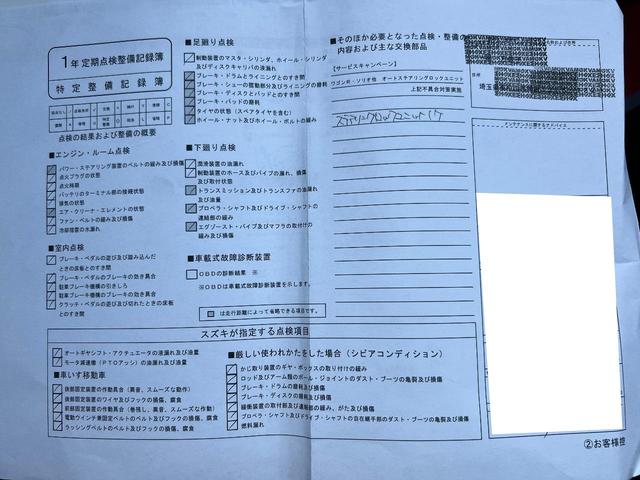 1年定期点検整備記録簿
特定整備記録簿
点検の結果および整備の概要
■エンジン・ルーム点検
パワー・ステアリング装置のベルトの緩み及び損傷
点火プラグの状態
点火時期
バッテリのターミナル部の接続状態
排気の状態
エア・クリーナ・エレメントの状態
ファン・ベルトの緩み及び損傷
冷却装置の水漏れ
■室内点検
ブレーキ・ペダルの遊び及び踏み込んだ
ときの床板とのすき間
ブレーキ・ペダルのブレーキの効き具合
駐車ブレーキ機構の引きしろ
駐車ブレーキ機構のブレーキの効き具合
クラッチ・ペダルの遊び及び切れたときの床板
とのすき間
■足廻り点検
制動装置のマスタ・シリンダ、ホイール・シリンダ
及びディスクキャリパの液漏れ
ブレーキ・ドラムとライニングとのすき間
ブレーキ・シューの摺動部分及びライニングの磨耗
ブレーキ・ディスクとパッドとのすき間
ブレーキ・パッドの磨耗
タイヤの状態（スペアタイヤを含む）
ホイール・ナット及びホイール・ボルトの緩み
■下廻り点検
潤滑装置の油漏れ
制動装置のホース及びパイプの漏れ、損傷
及び取付状態
トランスミッション及びトランスファの油漏れ
及び油量
プロペラ・シャフト及びドライブ・シャフトの
連結部の緩み
エグゾースト・パイプ及びマフラの取付けの
緩み及び損傷
■車載式故障診断装置
OBDの診断結果 ※
※OBDは車載式故障診断装置を示します。
は走行距離によって省略できる項目です。
■そのほか必要となった点検・整備の
内容および主な交換部品
【サービスキャンペーン】
ワゴンR・ソリオ他 オートステアリングロックユニット
上記不具合対策実施
住所
埼玉
メンテナンスに関するアドバイス
スズキが指定する点検項目
オートギヤシフト・アクチュエータの液漏れ及び油量
モータ減速機（PTOアッシ）の油漏れ及び油量
■車いす移動車
後部固定装置の作動具合（異音、スムーズな動作）
後部固定装置のワイヤ及びフックの損傷、腐食
前部固定装置の作動具合（巻残し、異音、スムーズな作動）
電動ウインチ兼固定ベルトのベルト及びフックの損傷、腐食
ラッシングベルトのベルト及びフックの損傷、腐食
■厳しい使われかたをした場合（シビアコンディション）
かじ取り装置のギヤ・ボックスの取り付けの緩み
ロッド及びアーム類のボール・ジョイントのダスト・ブーツの亀裂及び損傷
ブレーキ・ドラムの磨耗及び損傷
ブレーキ・ディスクの磨耗及び損傷
緩衝装置の取付部及び連結部の緩み、がた及び損傷
プロペラ・シャフト及びドライブ・シャフトの自在継手部のダスト・ブーツの亀裂及び損傷
燃料漏れ
②お客様控